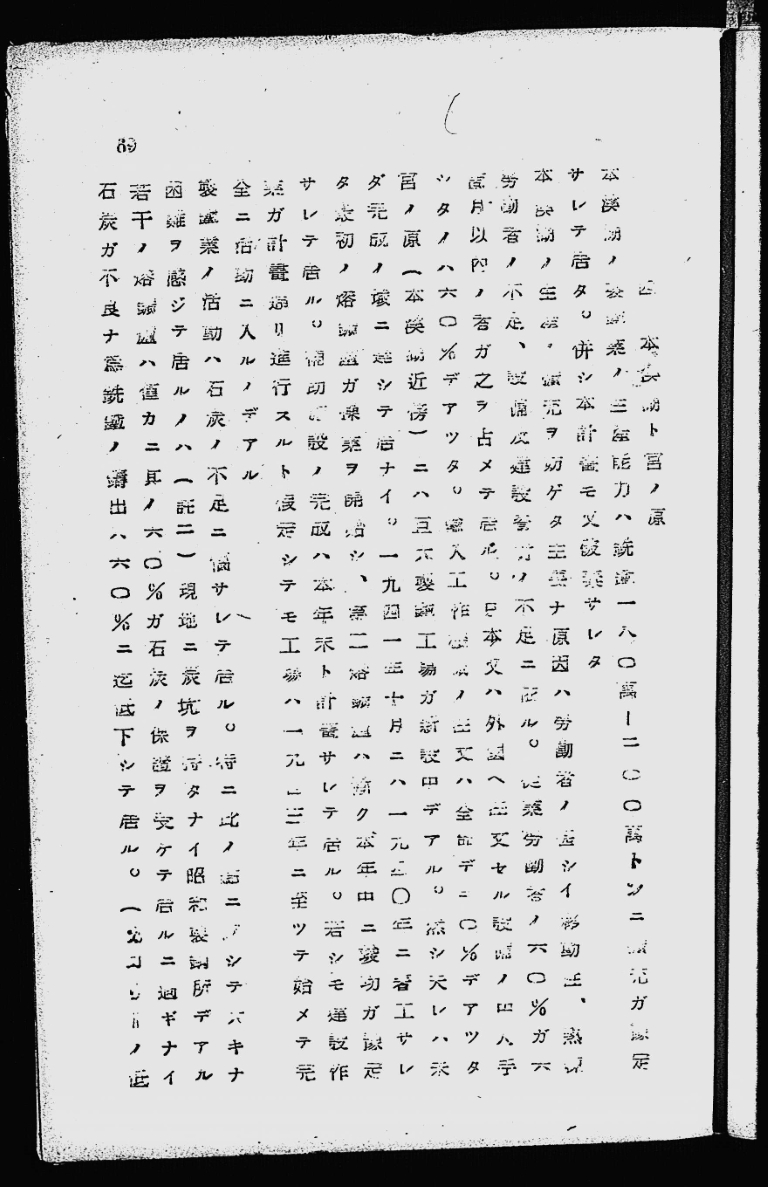 69
四 本溪湖ト宮ノ原
本溪湖ノ製鐵業ノ生産能力ハ銑鐵一八〇萬ー二〇〇萬トンニ擴充ガ豫定
サレテ居タ。併シ本計畫モ又破棄サレタ
本溪湖ノ生産、擴充ヲ妨ゲタ主要ナ原因ハ勞働者ノ甚シイ移動性、熟練
勞働者ノ不足、設備及建設勞力ノ不足ニ在ル。從業勞働者ノ六〇%ガ六
箇月以內ノ者ガ之ヲ占メテ居ル。日本又ハ外國ヘ注文セル設備ノ中入手
シタノハ六〇%デアツタ。輸入工作機械ノ注文ハ全部デ二〇%デアツタ
宮ノ原(本溪湖近傍)ニハ巨大製鋼工場ガ新設中デアル。然シ夫レハ未
ダ完成ノ域ニ達シテ居ナイ。一九四一年十月ニハ一九四〇年ニ着工サレ
タ最初ノ熔鑛爐ガ操業ヲ開始シ、第二熔鑛爐ハ漸ク本年中ニ竣功ガ豫定
サレテ居ル。補助 設ノ完成ハ本年末ト計畫サレテ居ル。若シモ建設作
業ガ計畫通リ進行スルト假定シテモ工場ハ一九四三年ニ至ツテ始メテ完
全ニ活動ニ入ルノデアル
製鐵業ノ活動ハ石炭ノ不足ニ惱サレテ居ル。特ニ此ノ點ニ シテ大キナ
困難ヲ感ジテ居ルノハ(註二)現地ニ炭坑ヲ持タナイ昭和製鋼所デアル
若干ノ熔鑛爐ハ僅カニ其ノ六〇%ガ石炭ノ保證ヲ受ケテ居ルニ過ギナイ
石炭ガ不良ナ爲銑鐵ノ鑄出ハ六〇%ニ迄低下シテ居ル。( ノ低